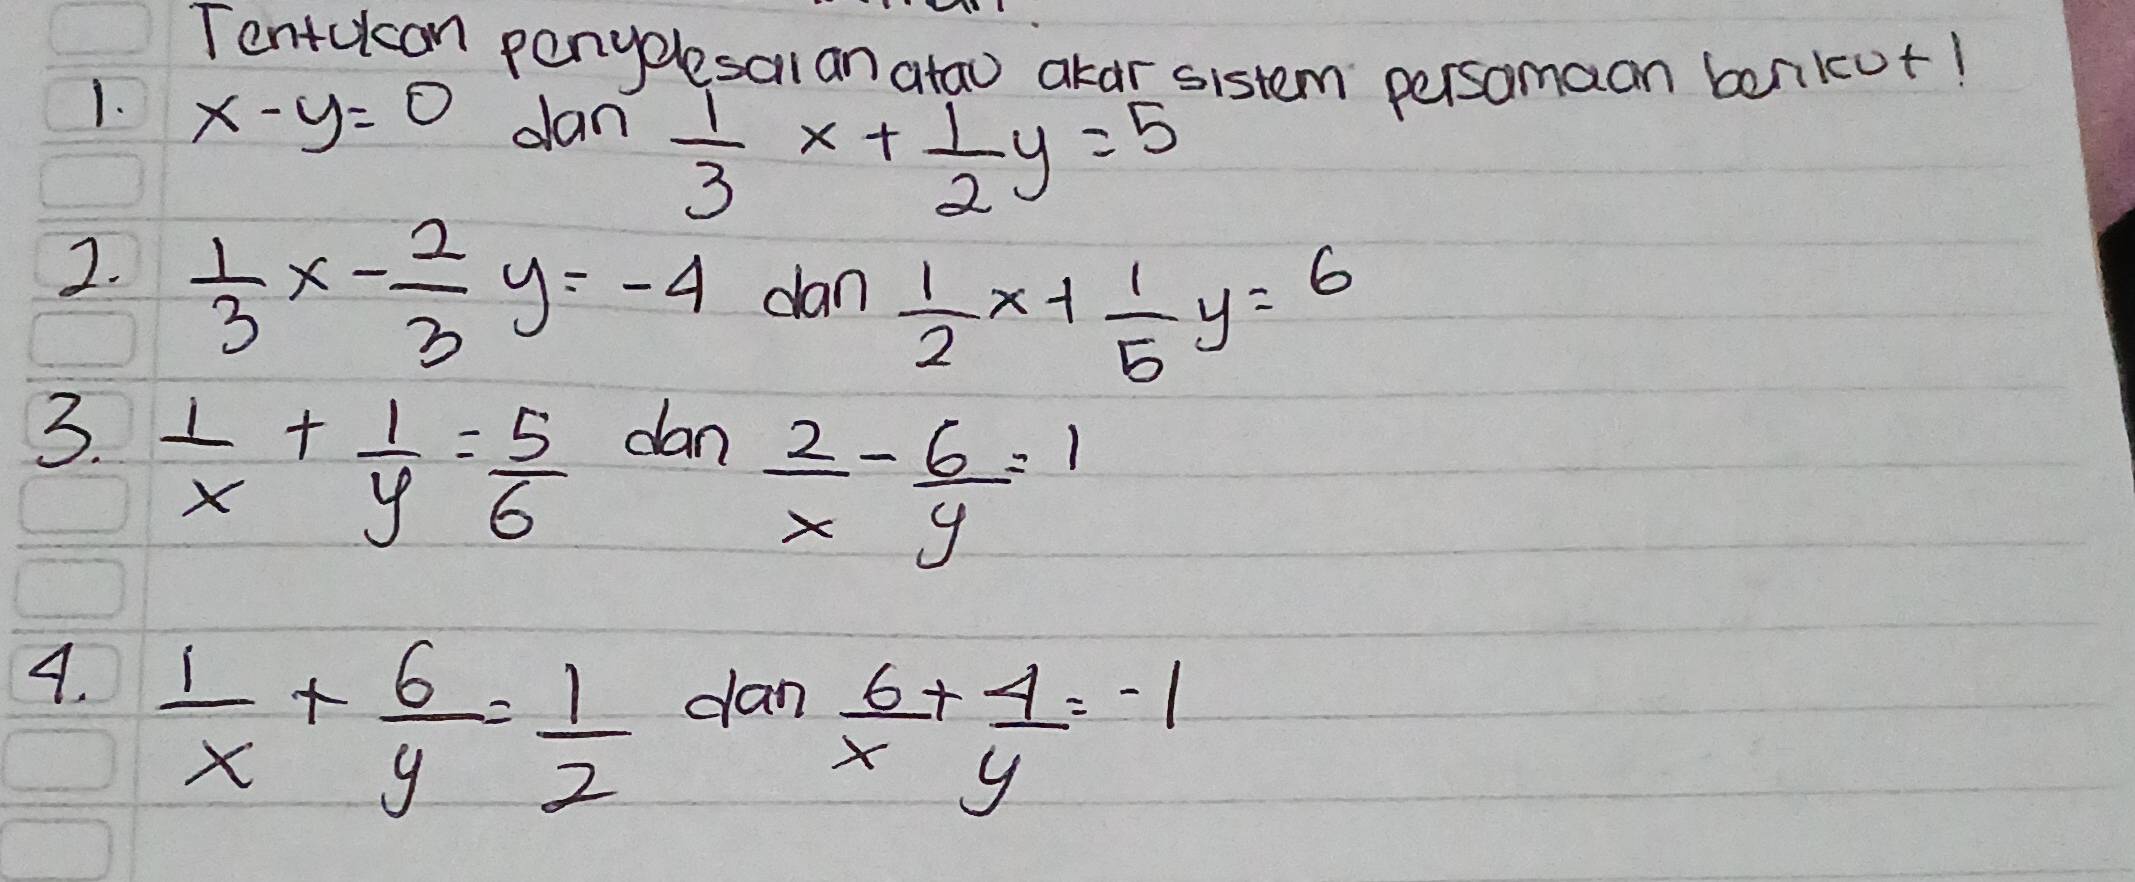 Tentukan penyelesaian atau akar sistem persamaan berikut!
1. x - y = 0 dan 1/3 x + 1/2 y = 5
2. 1/3 x - 2/3 y = -4 dan 1/2 x + 1/5 y = 6
3. 1/x + 1/y = 5/6 dan 2/x - 6/y = 1
4. 1/x + 6/y = 1/2 dan 6/x + 4/y = -1